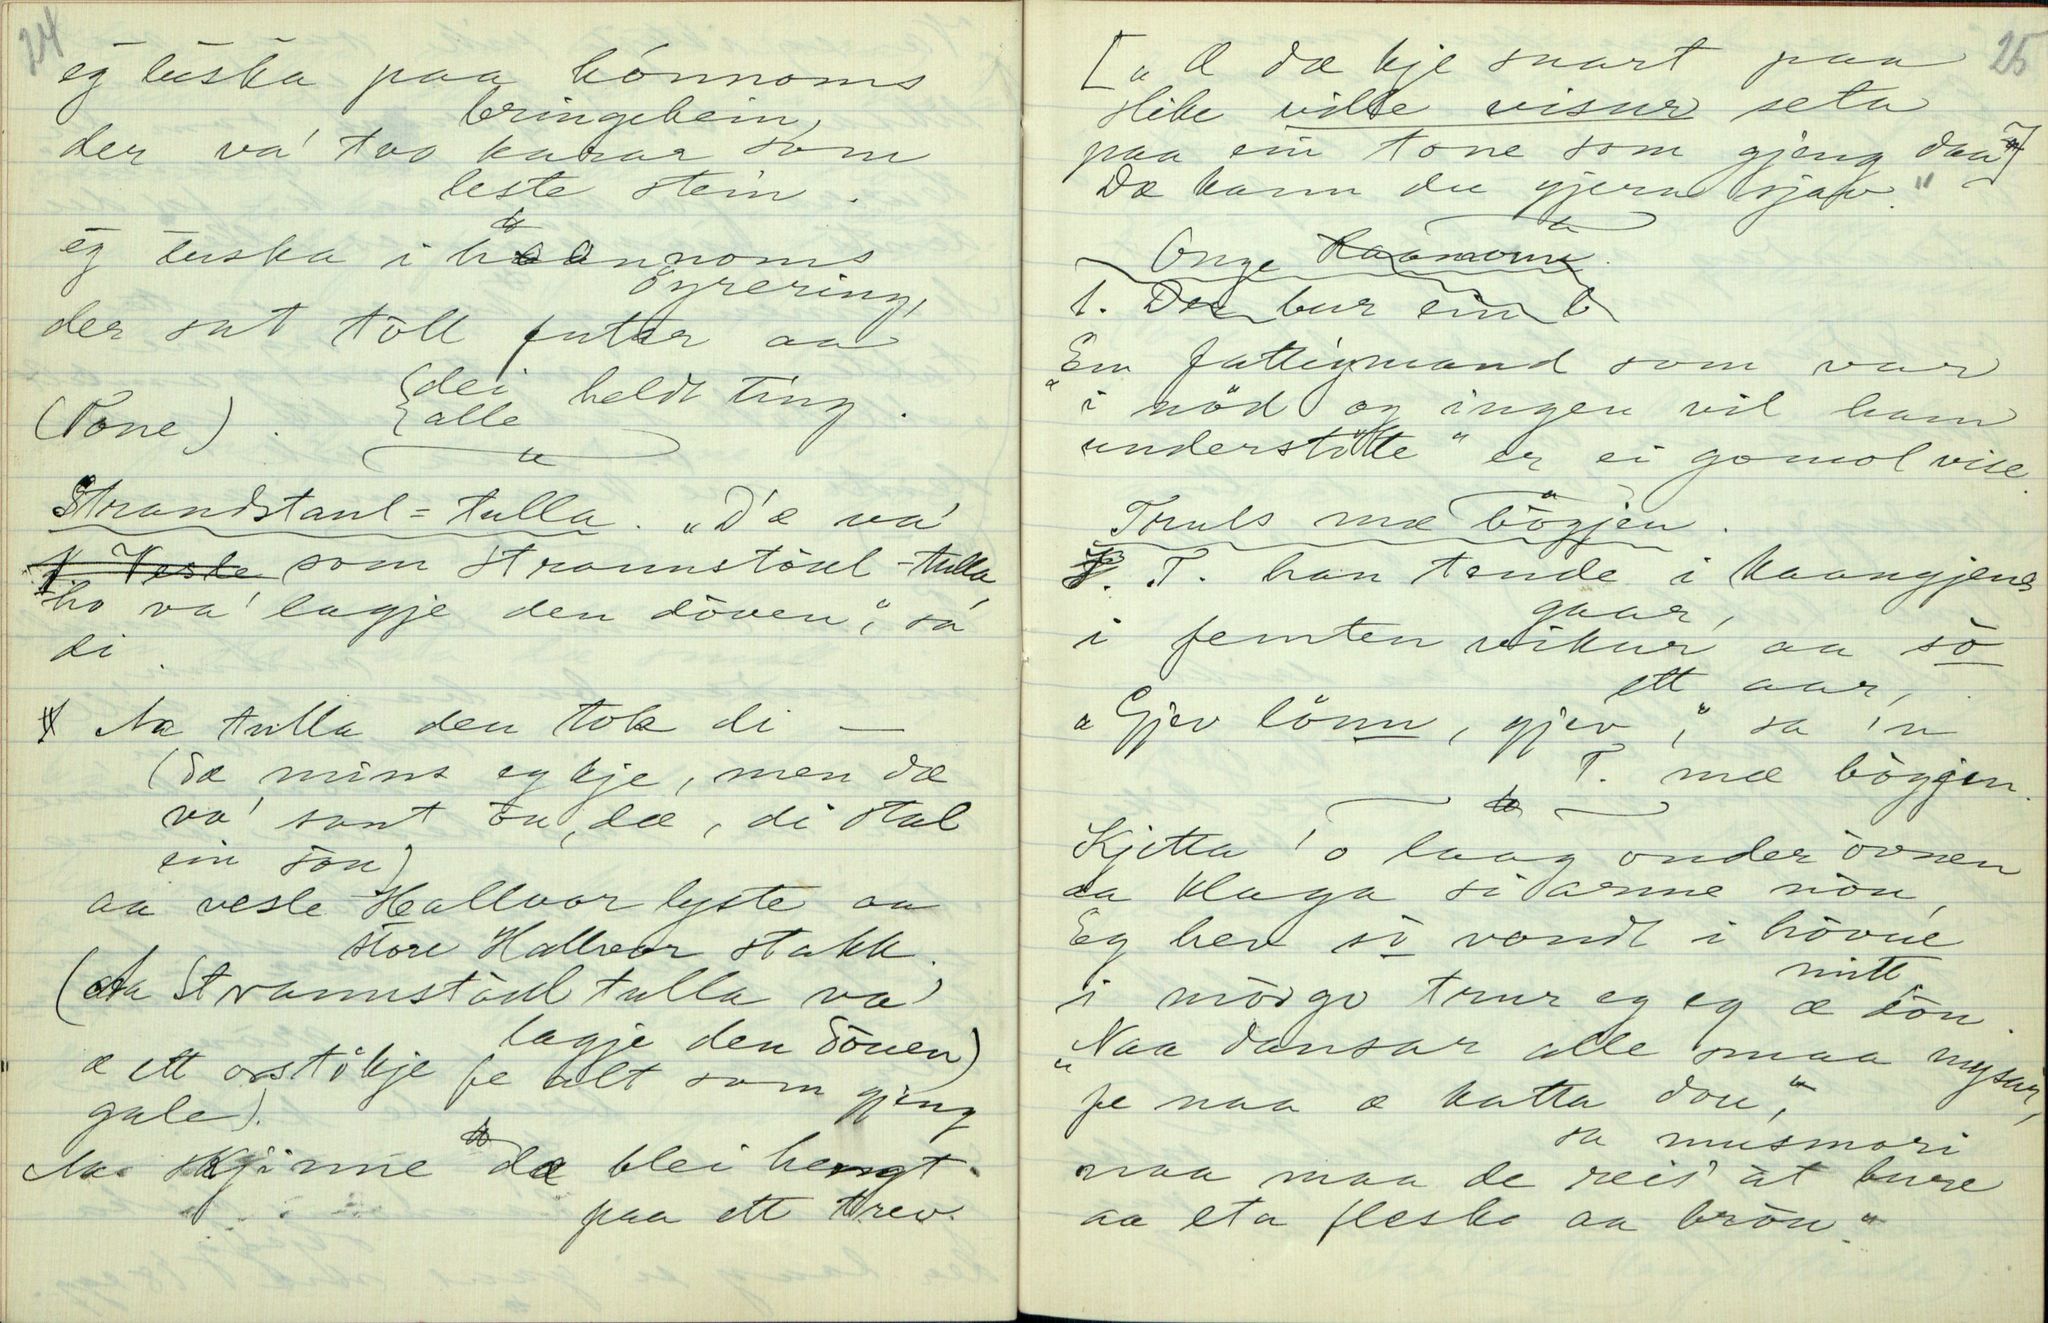 24
eg tuska paa hónnoms
bringebein,
der va' tvo karar som
leste stein.
eg tuska i honnoms
öyrering,
der sat töll futar aa
dei
alle heldt ting.
(Tone).
Strandstaul-tulla. "D'æ va'
Veste som Strannstöul-tulla,
ho va' lagje den döven", sa
di.
Aa tulla den tok di —
(dæ mins eg kje, men dæ
va' sant òu, dæ, di stal
ein sou)
aa vesle Hallvor lyste aa
store Hallvor stakk.
(Aa Strannstöul tulla va'
lagje den döuen)
æ ett orstökje fe alt som gjeng
gale).
Aa skjinne dæ blei hengt
paa ett trev.
25
["Æ dæ kje snart paa
slike ville visur seta
paa ein tone som gjeng daa"]
Dæ kann du gjerne sjav."
Onge
1. Der bur ein
"En fattigmand som var
i nöd og ingen vil ham
understötte" er ei gomol vise.
Truls mæ bögjen.
T. han tende i Kaangjens
gaar,
i femten vikur aa sò
ett aar,
"Gjev lönn, gjev", sa 'n
T. mæ bögjen.
Kjetta 'o laag onder òvnen
aa klaga si arme nöu,
Eg hev sò vondt i hövue
mitt,
i mörgo trur eg eg æ döu.
"Naa dansar alle smaa mysar,
fe naa æ katta dou",
sa musmori
naa maa de reis' åt bure
aa eta fleske aa bröu."